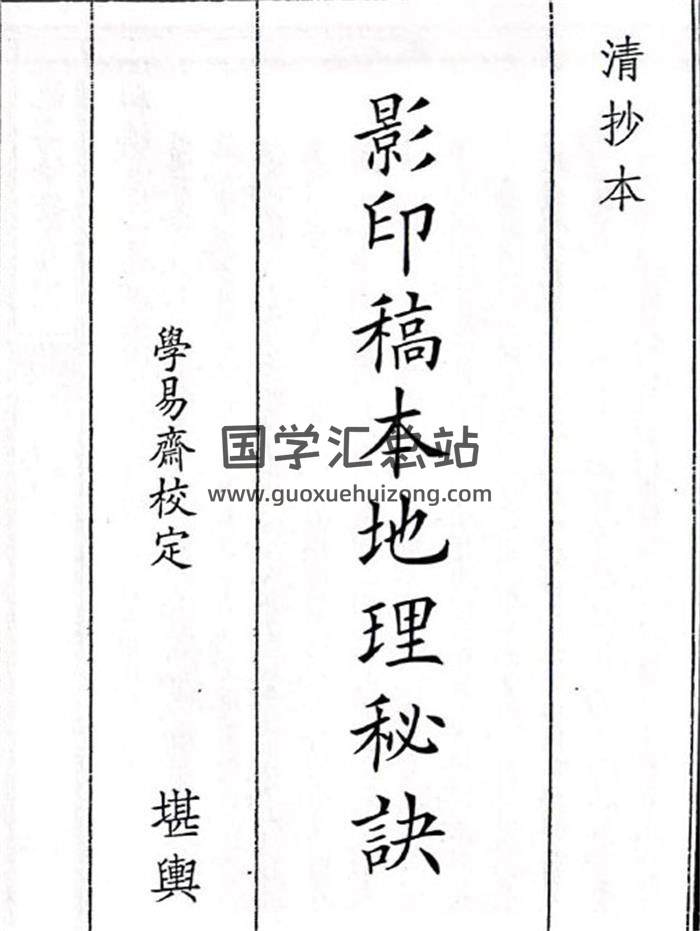 清抄本
影印稿本地理秘訣
學易齋校定
堪輿
国学汇总站
www.guoxuehuizong.com